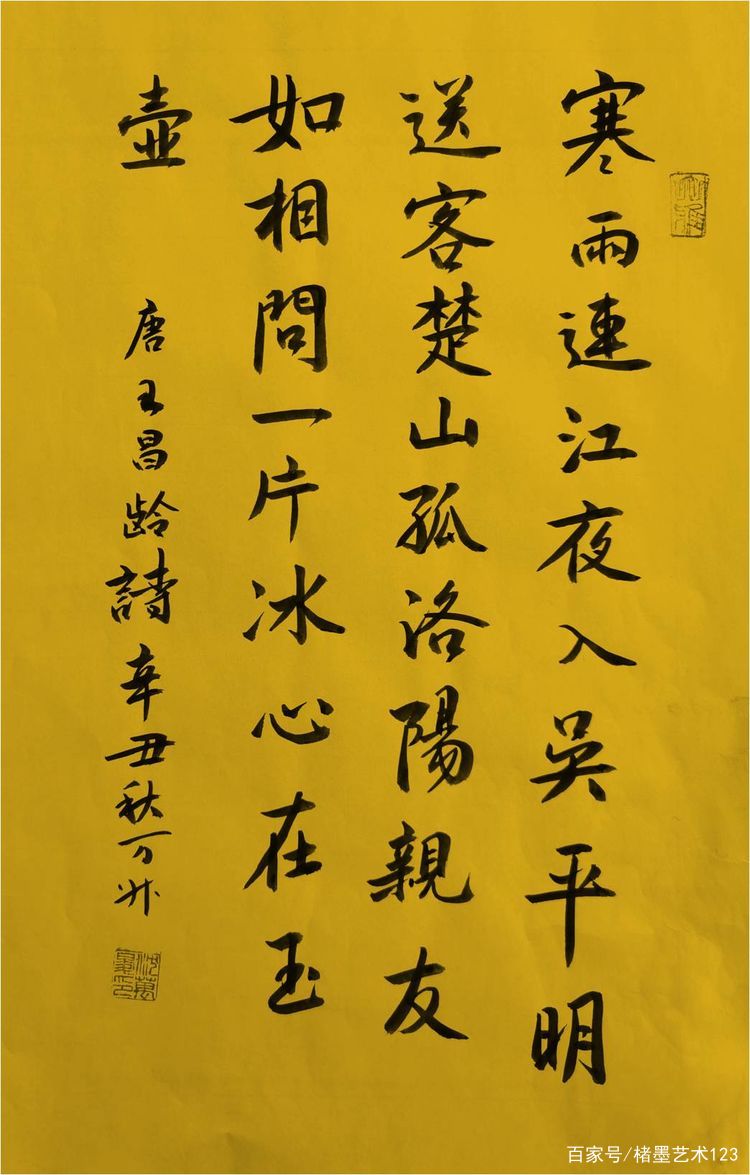 寒雨連江夜入吳平明
送客楚山孤洛陽親友
如相問一片冰心在玉
壺
唐王昌齡詩辛丑秋万
百家号/楮墨艺术123